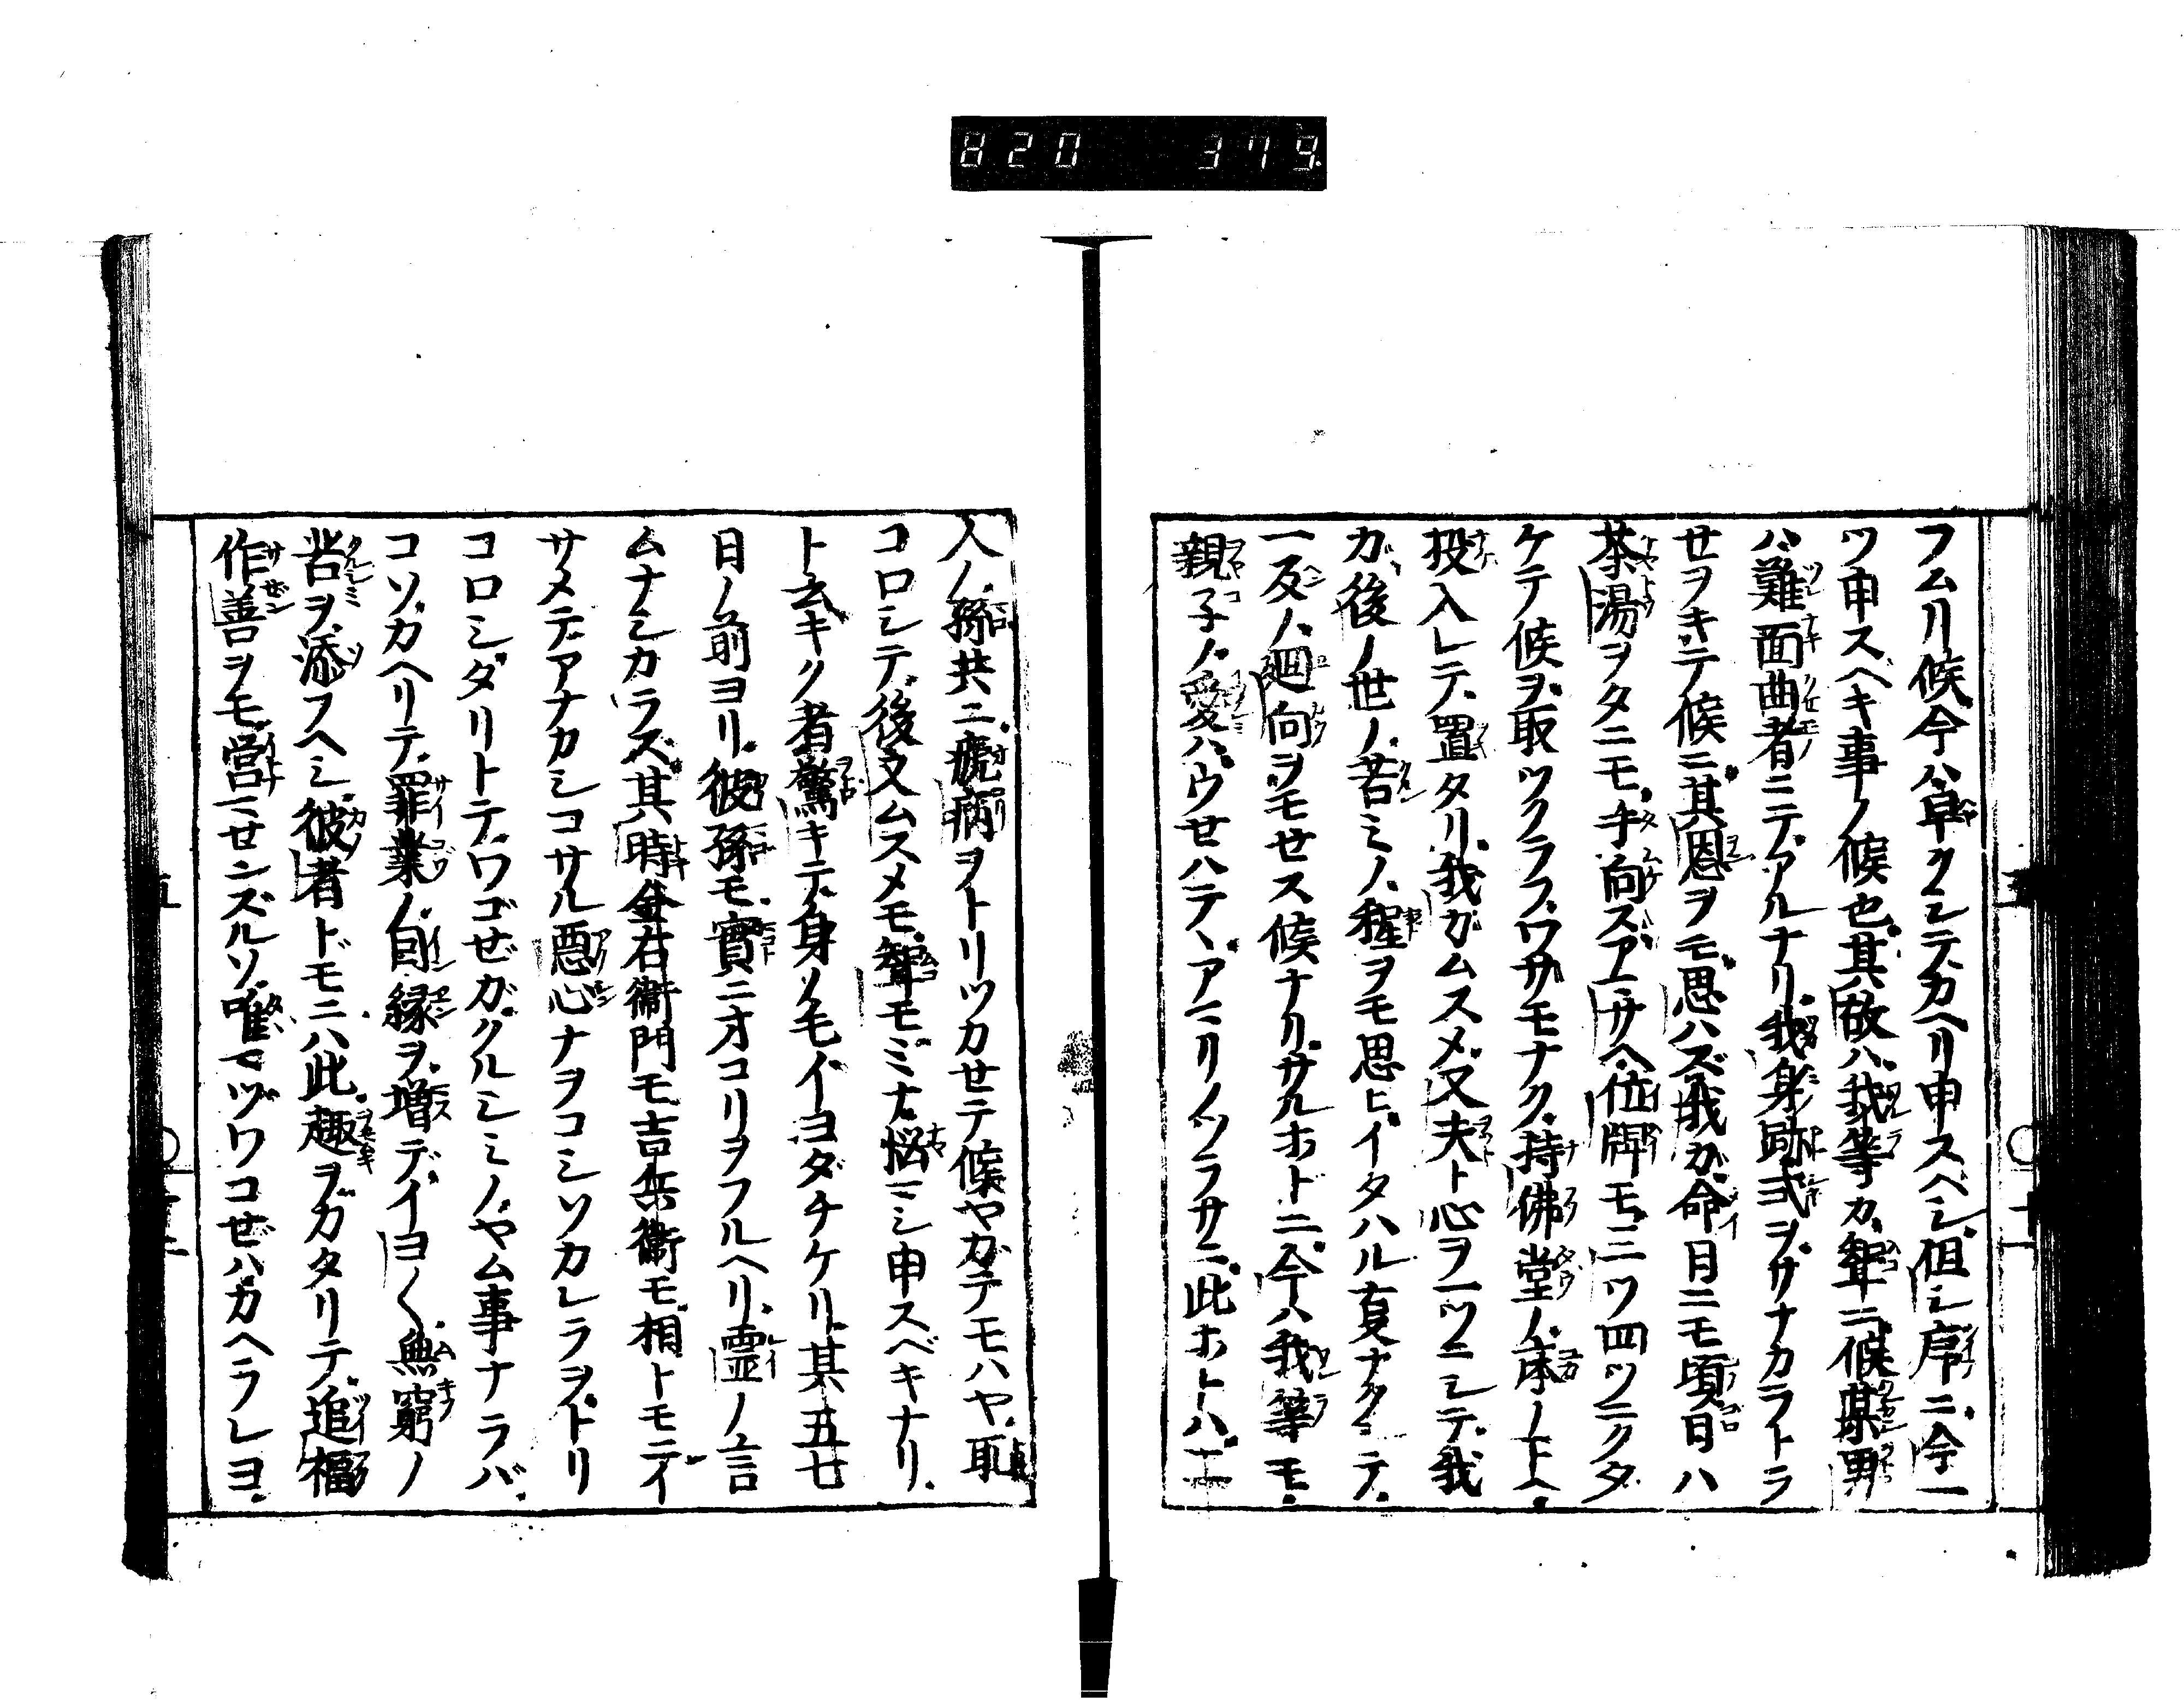 820 379
フムリ候今ハ早クシテカヘリ申スヘシ但シ序ニ今一
ツ申スヘキ事ノ候也其故ハ我等カ聟ニ候某男
ハ難面曲者ニテアルナリ我身跡式ヲサナカラトラ
せヲキテ候ニ其恩ヲモ思ハズ我カ命日ニモ頃日ハ
茶湯ヲタニモ手向スアマサヘ位牌モ三ツ四ツニクタ
ケテ候ヲ取ツクラフワサモナク持佛堂ノ床ノ下ヘ
投入レテ置タリ我ガムスメ又夫ト心ヲ一ツニシテ我
カ後ノ世ノ苦ミノ程ヲモ思ヒイタハル夏ナクシテ
一反ノ廻向ヲモせス候ナリサルホドニ今ハ我等モ
親子ノ愛ハウせハテヽアマリノツラサニ此ホトハ二
人ノ孫共ニ瘧病ヲトリツカせテ候ヤガテモハヤ取
コロシテ後又ムスメモ聟モミナ悩マシ申スベキナリ
ト云キク者驚キテ身ノモイヨダチケリ其五七
日ノ前ヨリ彼孫モ實ニオコリヲフルヘリ霊ノ言
ムナシカラズ其時金右衞門モ吉兵衞モ相トモニイ
サメテアナカシコサル悪心ナヲコシソカレラヲトリ
コロシダリトテワゴぜガクルシミノヤム事ナラバ
コソカヘリテ罪業ノ因縁ヲ増デイヨ〱無窮ノ
苦ヲ添フヘシ彼者ドモニハ此趣ヲガタリテ追福
作善ヲモ営マせンズルソ唯マヅワコぜハカヘラレヨ